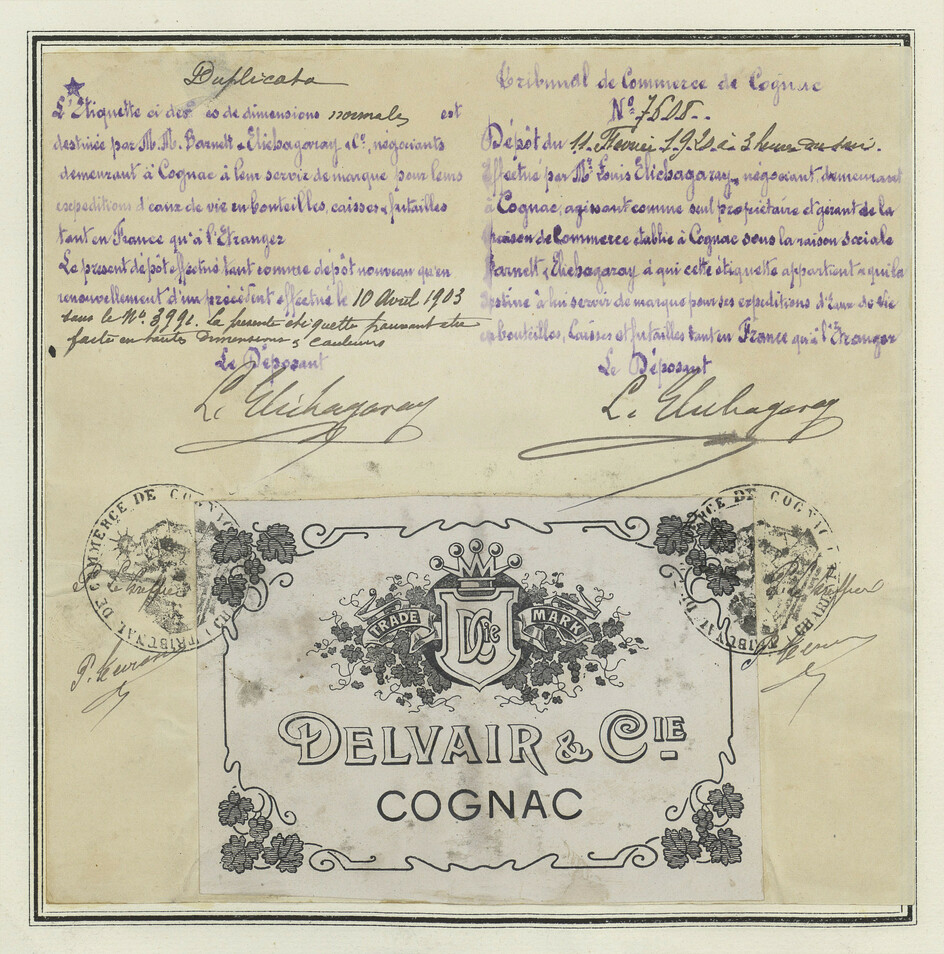 Duplicata
L'Etiquette ci des es de dimensions normales est
destinée par M.M. Barnett & Elichagaray & Cie, négociants
demeurant à Cognac à leur servir de marque pour leurs
expeditions d'eaux de vie en bouteilles, caisses & futailles
tant en France qu'à l'Etranger
Le présent dépôt effectué tant comme dépôt nouveau qu'en
renouvellement d'un précédent effectué le 10 Avril 1903
sous le No. 3991. La présente étiquette pouvant être
faite en toutes dimensions & couleurs
Le Déposant
L. Elichagaray
Tribunal de Commerce de Cognac
No
Dépôt du 11 Février 1920 à 3 heures du soir.
Effectué par Mr. Louis Elichagaray, négociant, demeurant
à Cognac, agissant comme seul propriétaire et gérant de la
maison de Commerce établie à Cognac sous la raison sociale
Barnett & Elichagaray à qui cette étiquette appartient & qui la
destine à lui servir de marque pour ses expeditions d'Eaux de Vie
en bouteilles, Caisses et futailles tant en France qu'à l'Etranger
Le Déposant
L. Elichagaray
TRIBUNAL DE COMMERCE DE COGNAC
Le Greffier
TRIBUNAL DE COMMERCE DE COGNAC
Le Greffier
TRADE MARK
DCie
DELVAIR & CIE
COGNAC